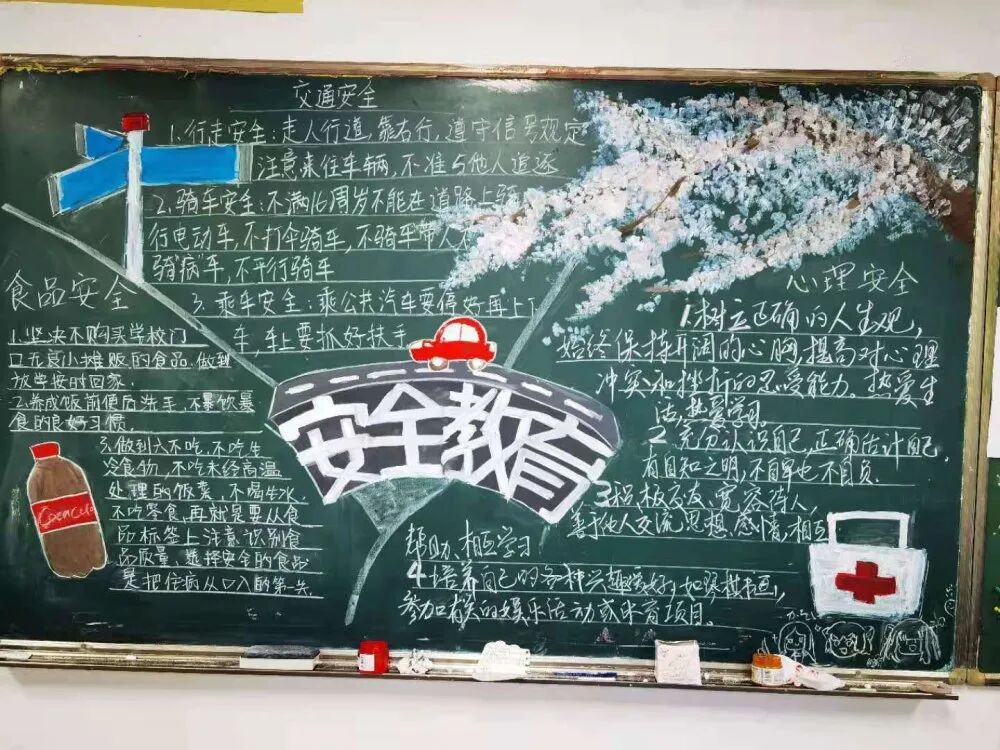 交通安全
1.行走安全:走人行道,靠右行,遵守信号规定
注意来往车辆,不准与他人追逐
2.骑车安全:不满16周岁不能在道路上骑
行电动车,不打伞骑车,不骑车带人不
骑"病"车,不平行骑车
3.乘车安全:乘公共汽车要停好再上下
车,车上要抓好扶手
食品安全
1.坚决不购买学校门
口无良小摊贩的食品.做到
放学按时回家.
2.养成饭前便后洗手,不暴饮暴
食的良好习惯.
3.做到六不吃,不吃生
冷食物,不吃未经高温
处理的饭菜,不喝生水.
不吃零食,再就是要从食
品标签上注意识别食
品质量,选择安全的食品
是把住病从口入的第一关.
Cocacola
安全教育
心理安全
1.树立正确的人生观,
始终保持开阔的心胸,提高对心理
冲突和挫折的忍受能力.热爱生
活,热爱学习.
2.充分认识自己,正确估计自己,
有自知之明,不自卑也不自负.
3.积极交友,宽容待人,
善于他人交流思想,感情,相互
帮助、相互学习
4.培养自己的各种兴趣爱好,如琴棋书画,
参加有关的娱乐活动或体育项目.